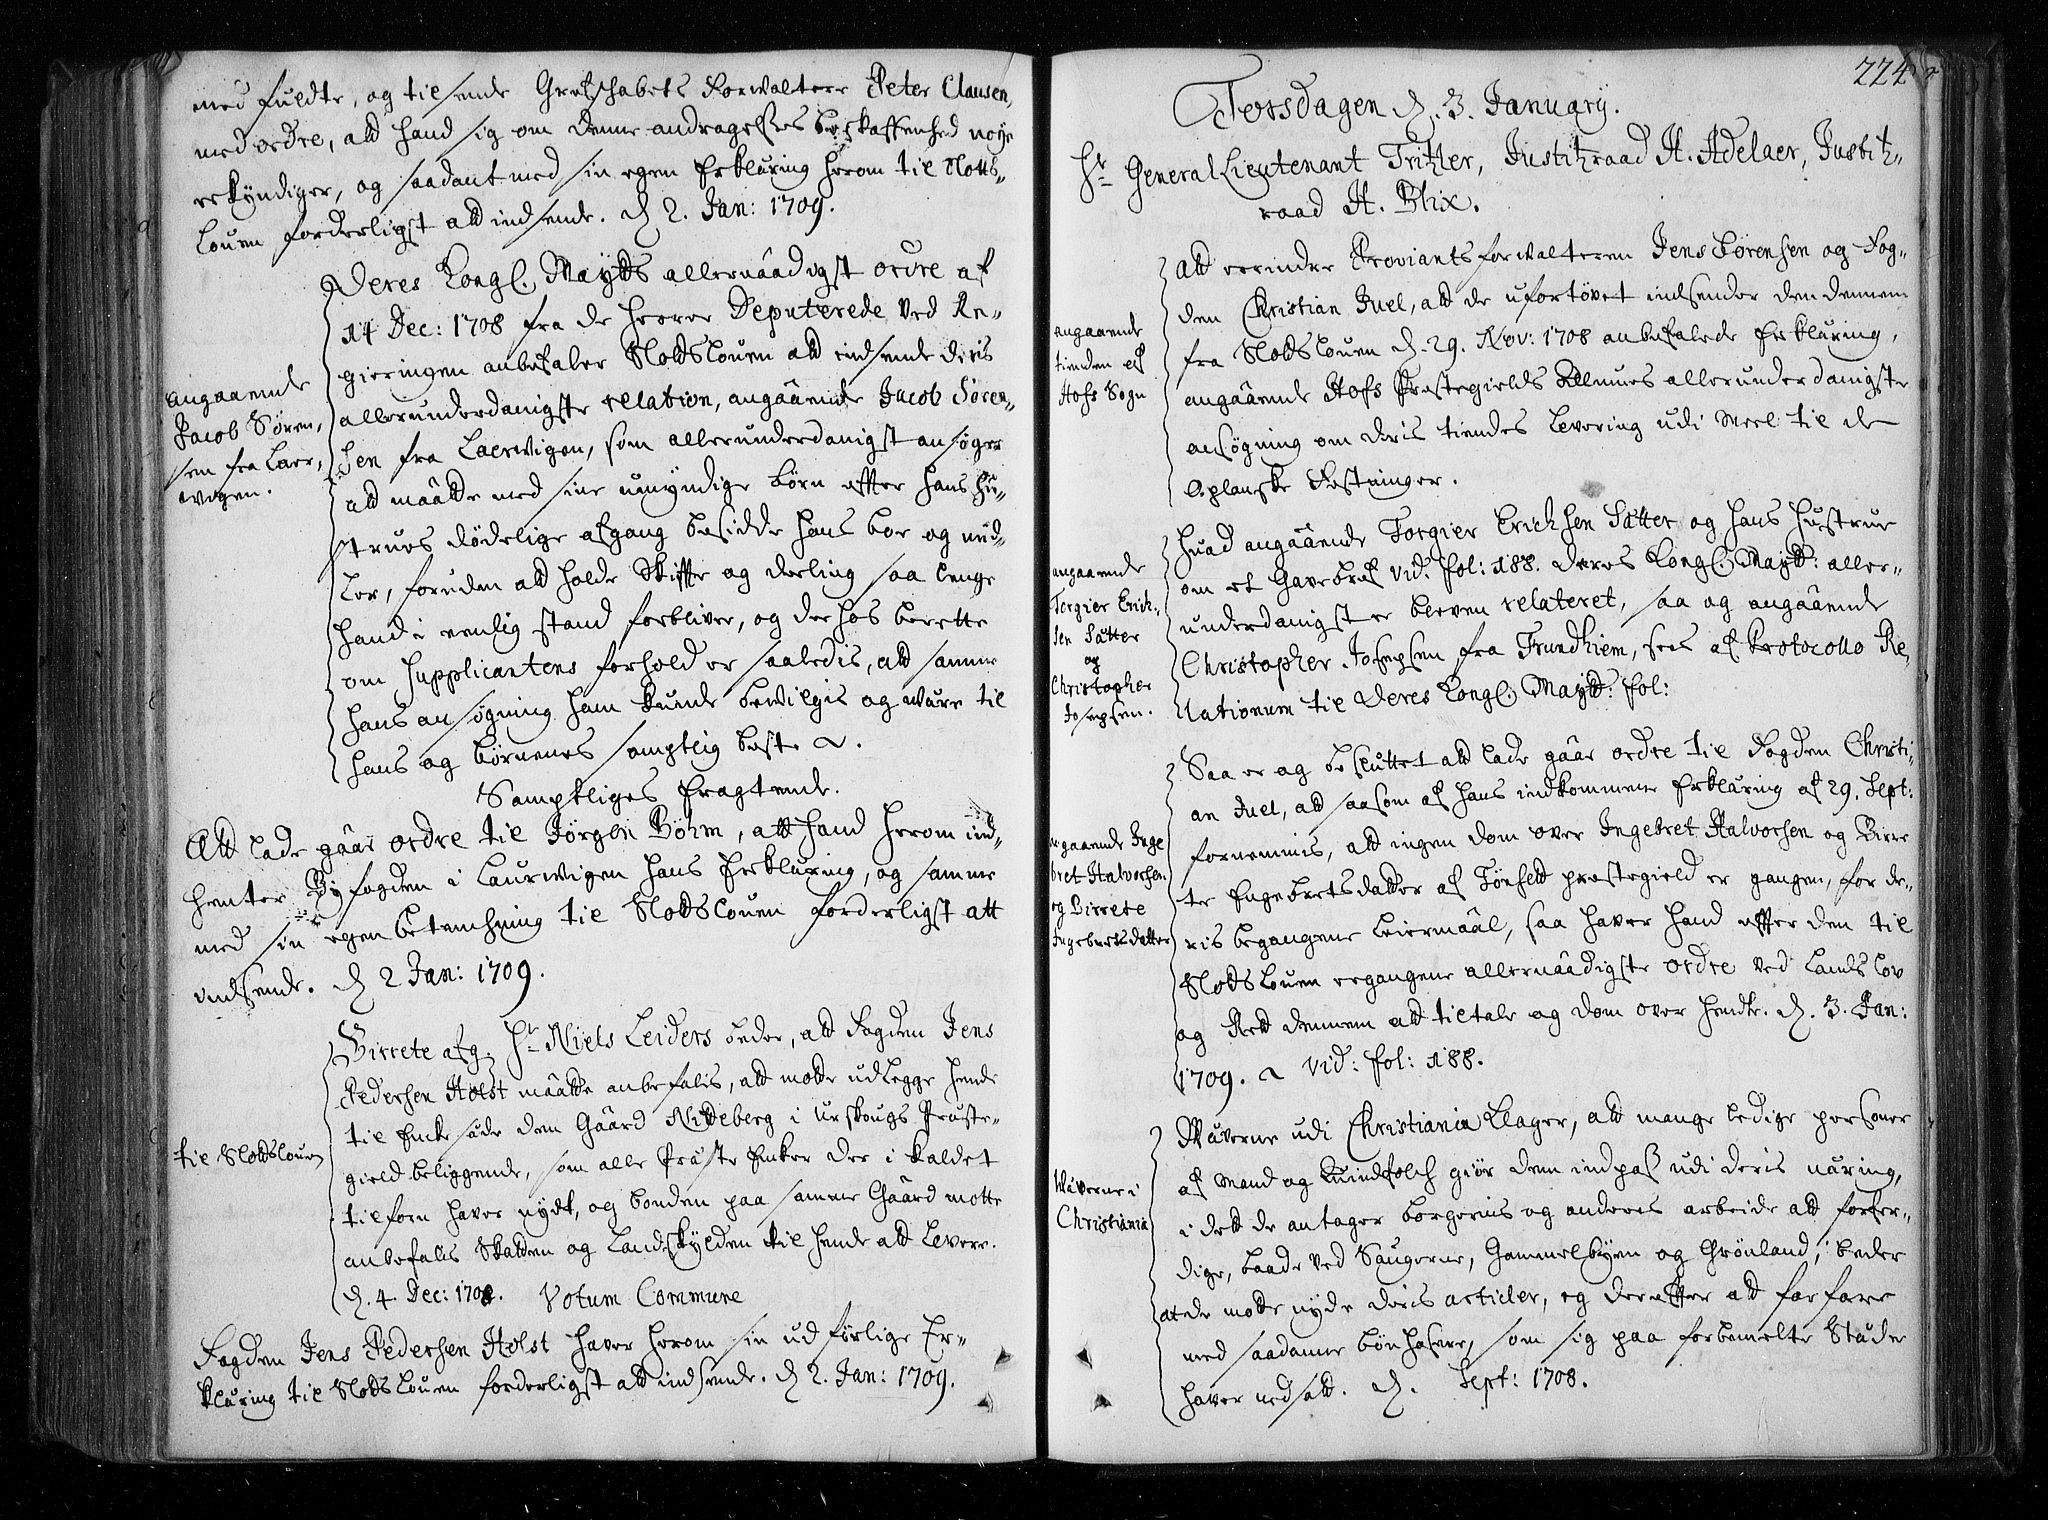 med fuldte, og tilsende Gretschabets Forwaltere Peter Clausen,
med ordre, att hand sig om denne andragelses beskaffenhed nøye
erkyndiger, og saadant med sin egen Erklæring herom til Slots-
Louen forderligst att indsende. d. 2. Jan: 1709.
Deres Kongl. Maytts allernaadigst ordre af
14 Dec: 1708 fra de herrer Deputerede ved Re-
gieringen anbefaler Slotslouen att indsende deris
allerunderdanigste relation, angaaende Jacob Søren-
sen fra Laerwigen, som allerunderdanigst ansøger
att maatte med sine umyndige børn effter hans Hu-
struers dødelige afgang besidde hans boe og mid-
ler, foruden att holde Skiffte og deeling saa lenge
hand i eenlig stand forbliver, og derhos berette
om Supplicantens forhold er saaledis, att samme
hans ansøgning ham kunde bewilgis og være til
hans og børnenes samptlig beste &.
Samptliges Eragtende.
angaaende
Jacob Søren,
sen fra Laer,
wigen.
Att lade gaae ordre til Jørgen Böhm, att hand herom ind-
henter Byfogden i Laurwigen hans Erklæring, og samme
med sin egen betenchning til Slotslouen forderligst att
indsende. d 2 Jan: 1709.
Birrete afg. Hr Niels Leiders beder, att Fogden Jens
Pedersen Holst maatte anbefalis, att motte udlegge hende
til Enckesæde den Gaard Nideberg i Urskougs Præste-
gield beliggende, som alle Præste Enker der i Kaldet
tilforn haver nydt, og bonden paa samme Gaard motte
anbefalis Skatten og Landskylden til hende att levere.
d. 4 Dec: 1708. Votum Commune
til Slotslouen
Fogden Jens Pedersen Holst haver herom sin udførlige Er-
klæring til Slotslouen forderligst att indsende. d 2. Jan: 1709.
224
Torsdagen d. 3. January.
Hr General Lieutenant Tritzler, Justitzraad H. Adelaer, Justitz-
raad H. Blix.
Att erindre Proviantsforwalteren Jens Sørensen og Fog-
den Christian Juel, att de ufortøvet indsender den dennem
fra Slotslouen d. 29. Nov: 1708 anbefalede Erklæring,
angaaende Hofs Præstegields Allmues allerunderdanigste
ansøgning om deris tiendes levering udi Meel til de
Oplanske Fæstninger.
angaaende
tienden af
Hofs Sogn
Huad angaaende Torgier Erichsen Sætter og hans Hustrue
om et Gavebref vid: fol: 188. Deres Kongl. Maytt: aller-
underdanigst er bleven relateret, saa og angaaende
Christopher Josepsen fra Trundhiem, sees af Protocollo Re-
lationum til Deres Kongl. Maytt: fol:
angaaende
Torgier Erich-
sen Sætter
og
Christopher
Josepsen.
Saa er og besluttet att lade gaae ordre til Fogden Christi-
an Juel, att saasom af hans indkommene Erklæring af 29. Sept:
fornemmis, att ingen dom over Ingebret Halvorsen og Birre
te Engebretsdatter af Tønsett præstegield er gangen, for de-
ris begangene Leiermaal, saa haver hand effter den til
Slotslouen ergangene allernaadigste ordre ved Landslov
og Rett dennem att tiltale og dom over hendte. d. 3. Jan:
1709. & vid: fol: 188.
angaaende Inge
bret Halvorsen
og Birrete
Ingebretsdatter
Wæverne udi Christiania klager, att mange ledige personer
af mand og Quindfolch giør dem indpas udi deris næring,
i dett de antager borgernis og anderes arbeide att forfer-
dige, baade ved Saugerne, Gammelbyen og Grønland, beder
at de motte nyde deris articler, og dereffter att forfare
med saadanne bønhasere, som sig paa forbemelte Stæde
haver nedsatt. d. Sept: 1708.
Wæverne i
Christiania